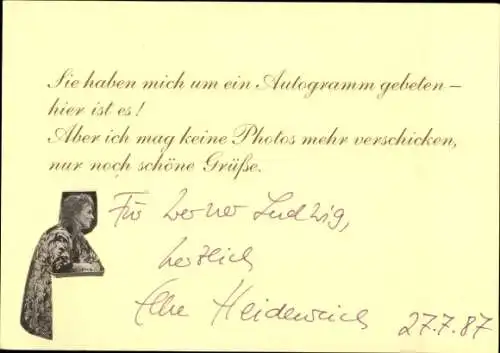 Sie haben mich um ein Autogramm gebeten –
hier ist es!
Aber ich mag keine Photos mehr verschicken,
nur noch schöne Grüße.
Für Werner Ludwig,
herzlich
Elke Heidenreich 27.7.87